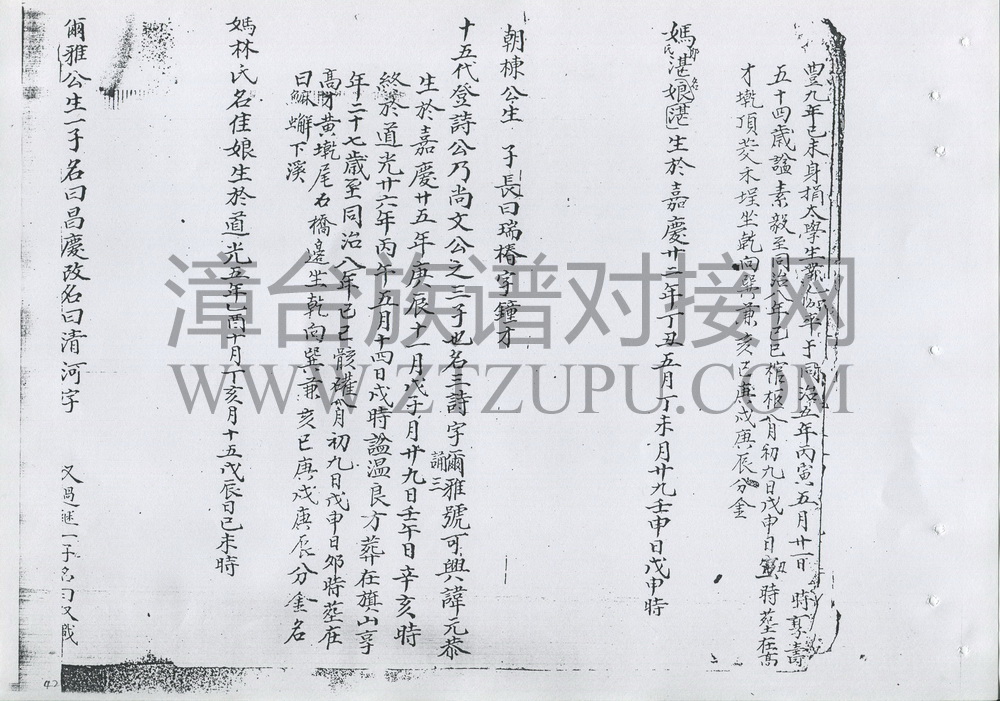 豊九年己未身捐太學生
卒于同治五年丙寅五月廿一日 時享壽
五十四歲謚素毅至同治八年己巳
八月初九日戊申日 時塟在高
才墘頂菱禾埕坐乾向巽兼亥巳庚戌庚辰分金
媽湛娘 生於嘉慶廿二年丁丑五月丁未月廿九壬申日戊申時
朝棟公生 子長曰瑞椿字鐘才
十五代登詩公乃尚文公之三子也名三詩字爾雅號可興諱元恭
誦三
生於嘉慶廿五年庚辰十一月戊子月廿九日壬午日辛亥時
終於道光廿六年丙午五月十四日戌時謚溫良方葬在旗山享
年二十七歲至同治八年己巳骸 八月初九日戊申日卯時塟在
高才黃墘尾石橋邊坐乾向巽兼亥巳庚戌庚辰分金名
曰 下溪
媽林氏名隹娘生於道光五年乙酉十月丁亥月十五戊辰日己未時
爾雅公生一子名曰昌慶改名曰清河字 又過継一子名曰
漳台族谱对接网
WWW.ZTZUPU.COM